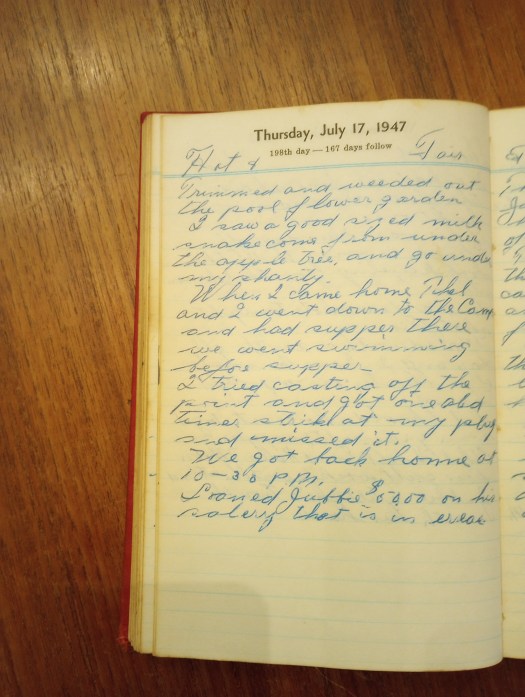 Thursday, July 17, 1947
198th day — 167 days follow
Hot & Fair
Trimmed and weeded out
the pool flower garden
I saw a good sized milk
snake come from under
the apple tree, and go under
my shanty.
When I came home
and I went down to the Camp
and had supper there
we went swimming
before supper
I tried casting off the
point and got one
time strike at my plug
and missed it.
We got back home at
10-30 P.M.
Loaned on his
salery that is in